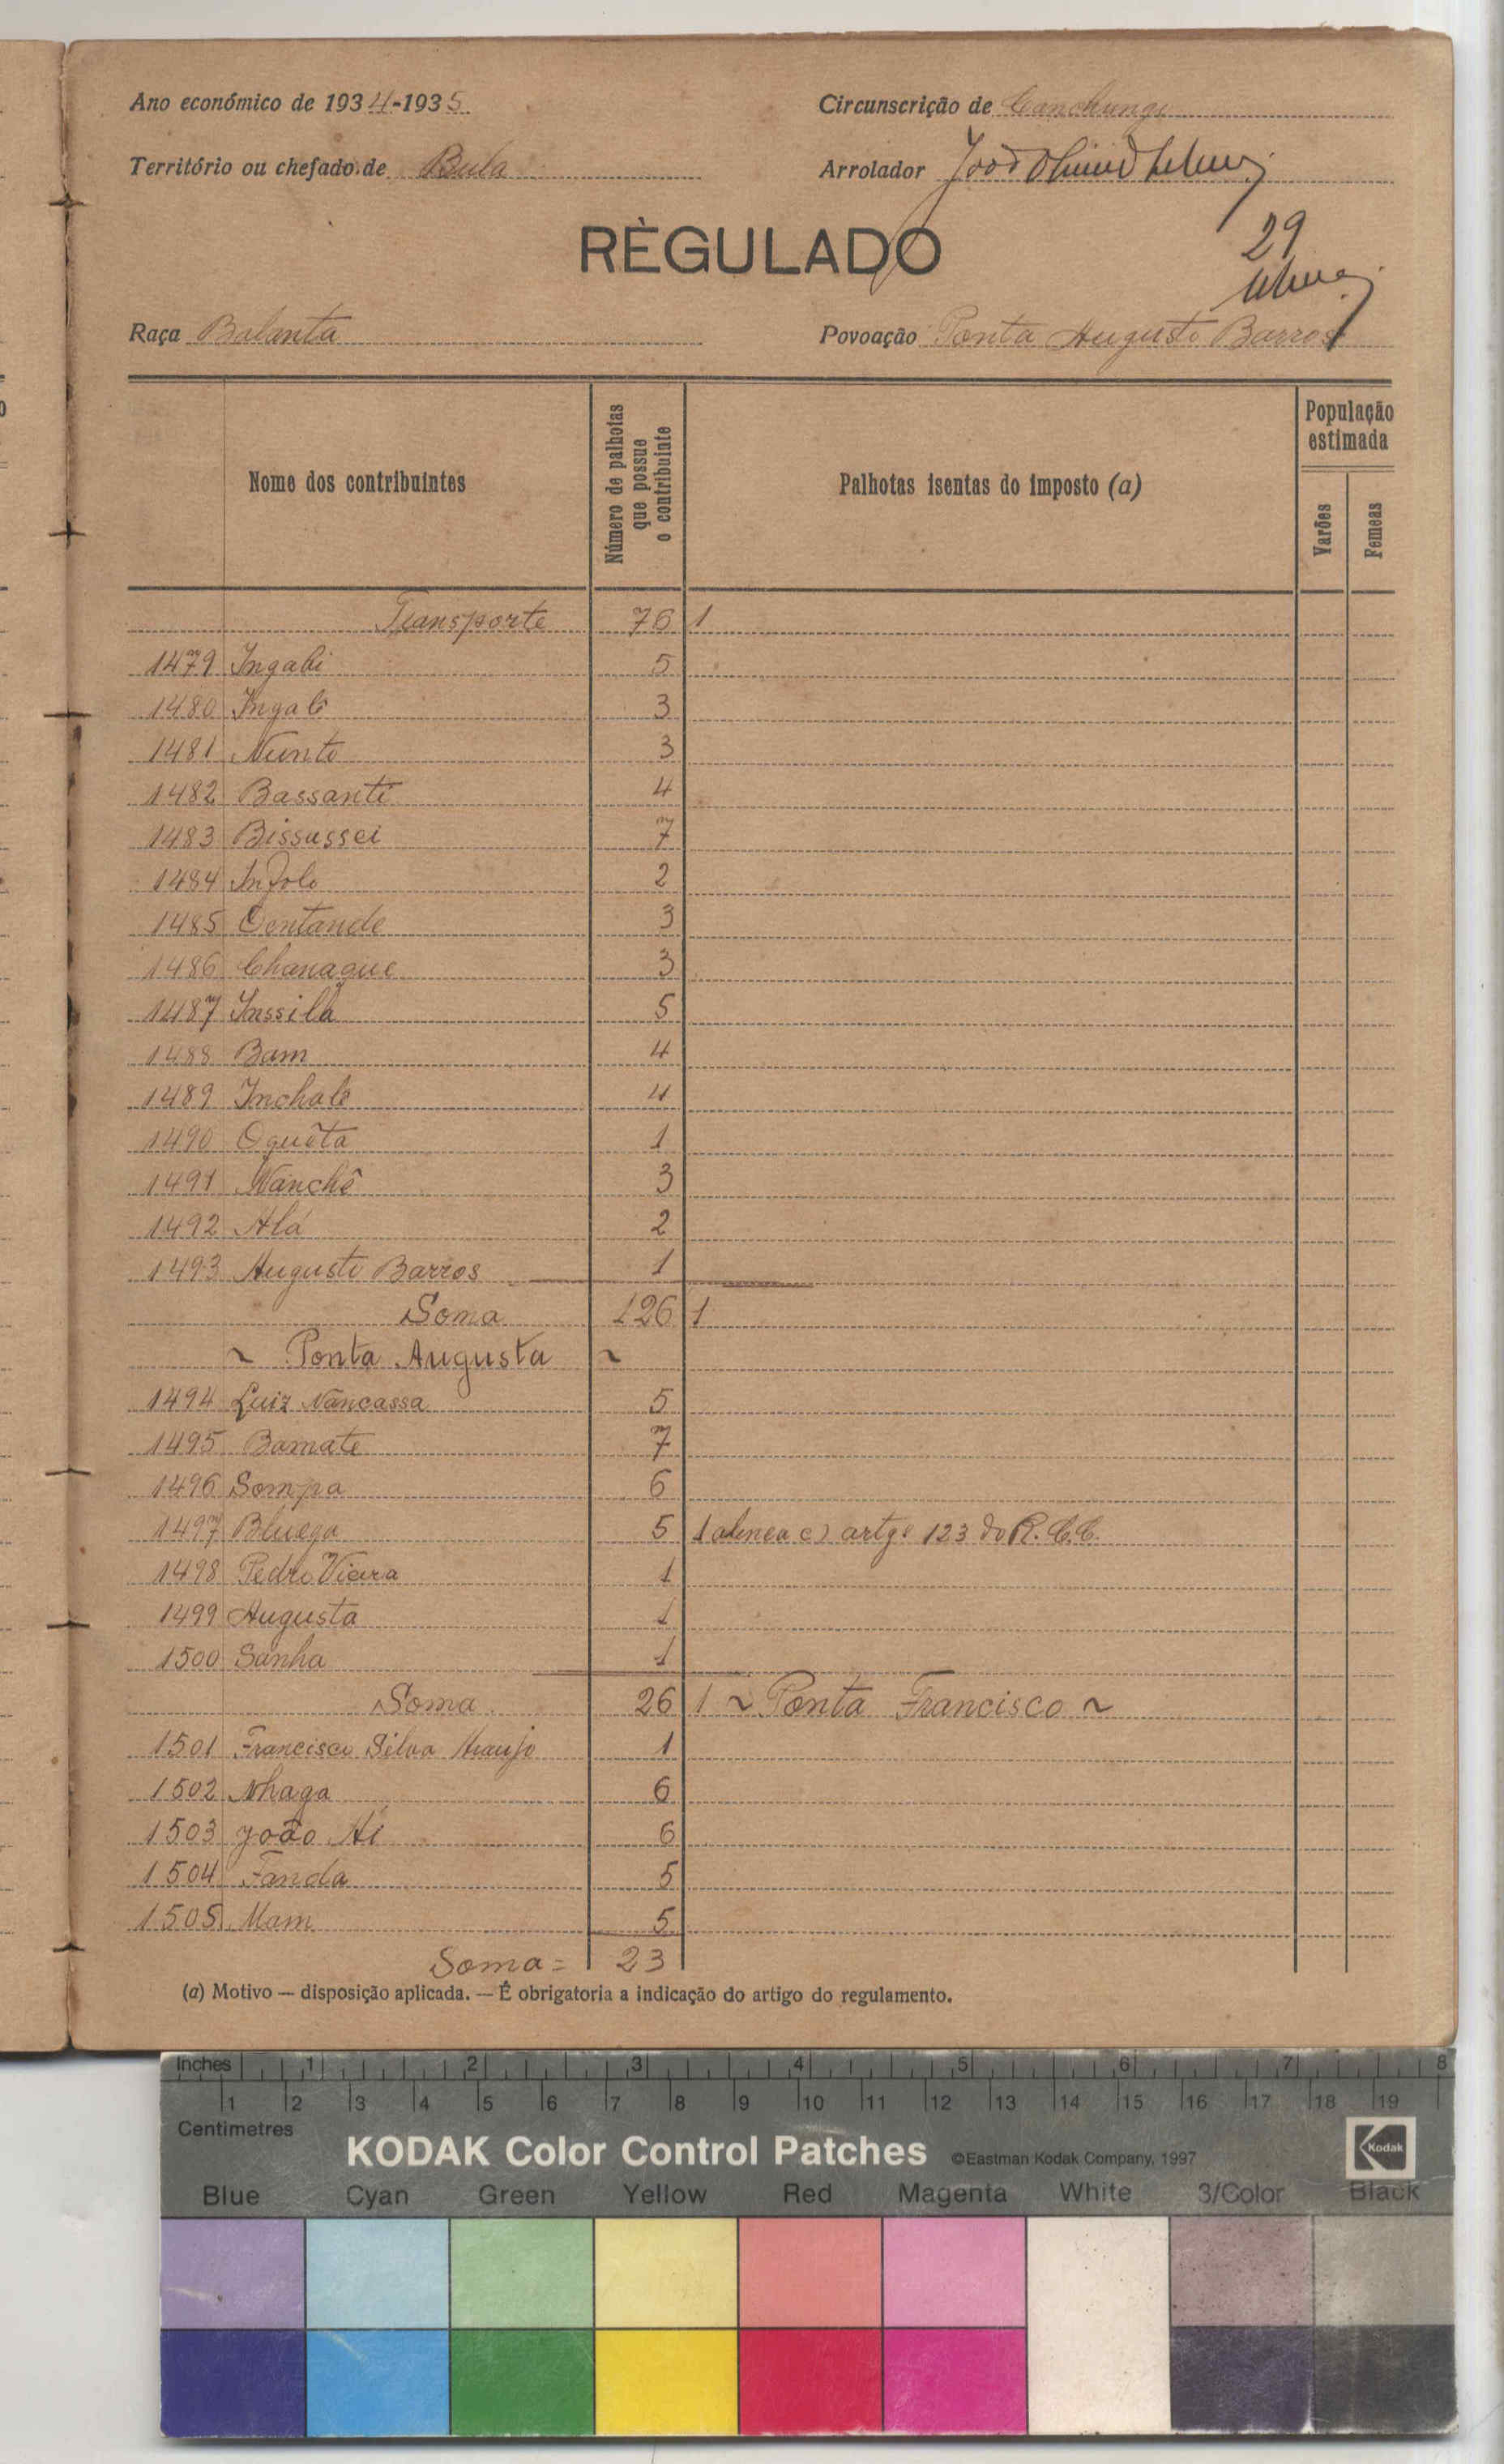 Ano económico de 1934-1935
Circunscrição de Canchungo
Território ou chefado de Bula
Arrolador João
RÈGULADO
29
Raça Balanta
Povoação Ponta Augusto Barros
Nome dos contribuintes
Número de palhotas que possue o contribuinte
Palhotas isentas do imposto (a)
População estimada
Varões
Femeas
Transporte 76 1
1479 Ingabi 5
1480 Ingaló 3
1481 Nunto 3
1482 Bassanti 4
1483 Bissassei 7
1484 2
1485 3
1486 Chanague 3
1487 Inssilá 5
1488 Bam 4
1489 Inchalé 4
1490 Oquêta 1
1491 Nanchê 3
1492 Alá 2
1493 Augusto Barros 1
Soma 126 1
~ Ponta Augusta ~
1494 Luiz Nancassa 5
1495 Bamate 7
1496 Sompa 6
1497 5 1 alinea c) artgº 123 do R.C.C.
1498 Pedro Vieira 1
1499 Augusta 1
1500 Sanha 1
Soma 26 1 ~ Ponta Francisco ~
1501 Francisco Silva Araujo 1
1502 Nhaga 6
1503 João Ai 6
1504 Fanda 5
1505 Mam 5
Soma = 23
(a) Motivo — disposição aplicada. — É obrigatoria a indicação do artigo do regulamento.
Inches 1 2 3 4 5 6 7 8
1 2 3 4 5 6 7 8 9 10 11 12 13 14 15 16 17 18 19
Centimetres
KODAK Color Control Patches ©Eastman Kodak Company, 1997 Kodak
Blue Cyan Green Yellow Red Magenta White 3/Color Black